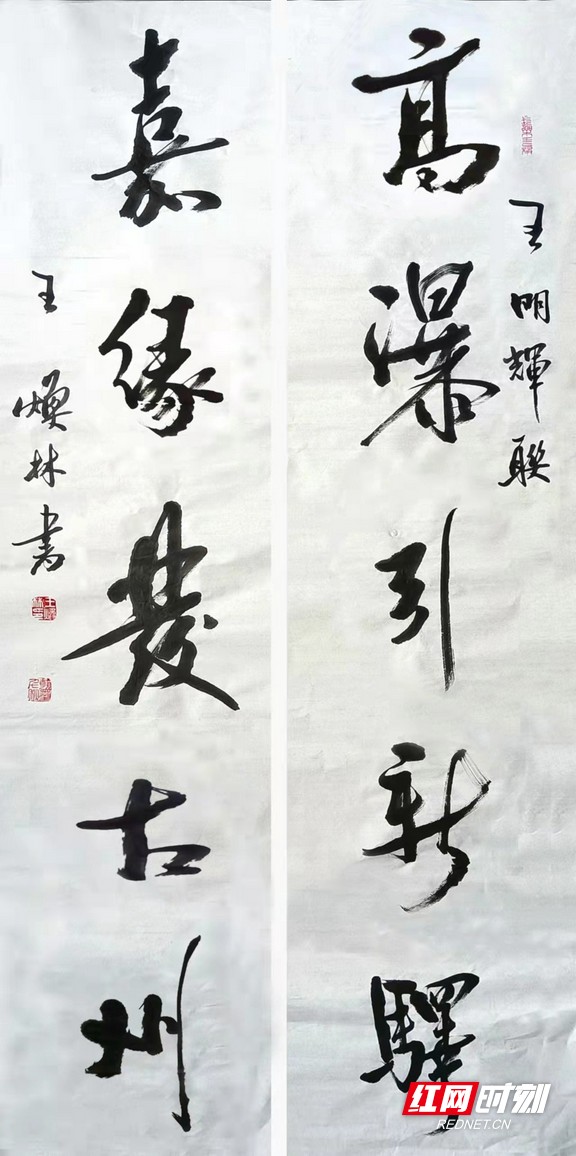 高瀑引新驛
王明輝聯
嘉緣發古州
王煥林書
红网时刻
REDNET.CN